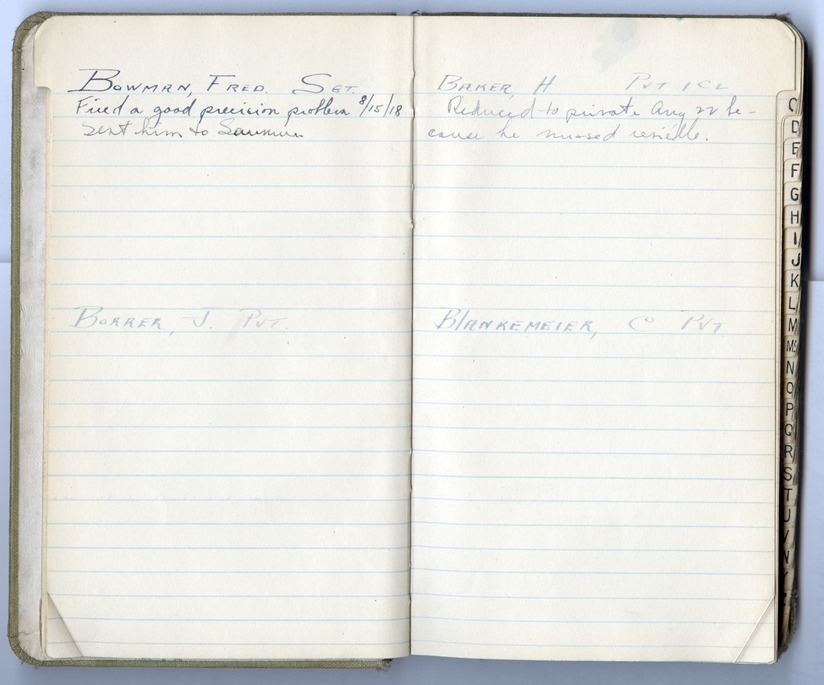 BOWMAN, FRED. SGT.
Fired a good precision problem 8/15/18
Sent him to Saumur
BORRER, J. PVT.
BAKER, H PVT 1 CL
Reduced to private Aug 22 be-
cause he missed reveille.
BLANKEMEIER, C PVT
C
D
E
F
G
H
I
J
K
L
M
Mc
N
O
P
Q
R
S
T
U
V
W